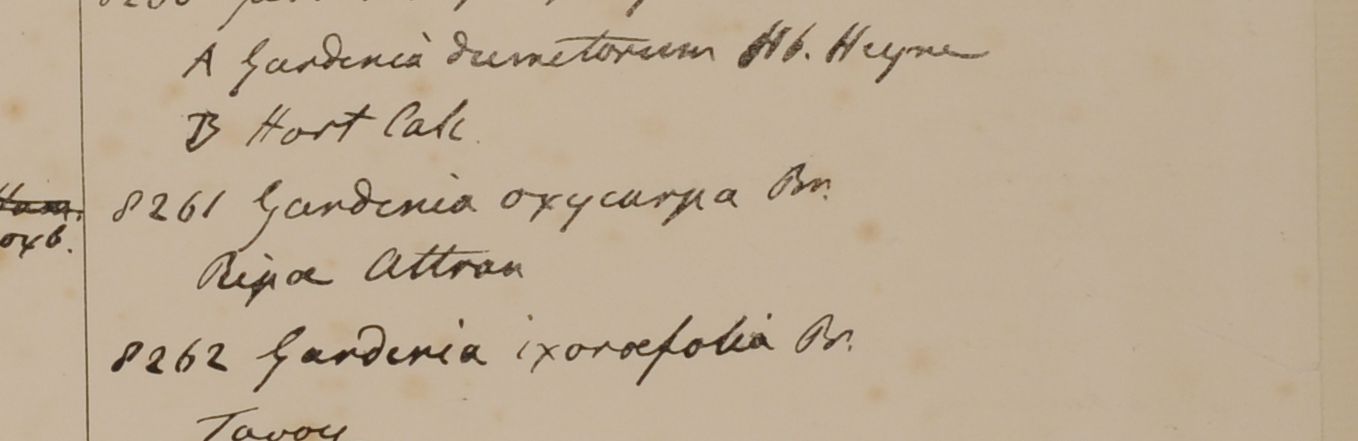 A Gardenia dumetorum Hb. Heyne
B Hort Calc
Ham.
8261 Gardenia oxycarpa Br.
oxb.
Ripæ Attran
8262 Gardenia ixoræfolia Br.
Tavoy